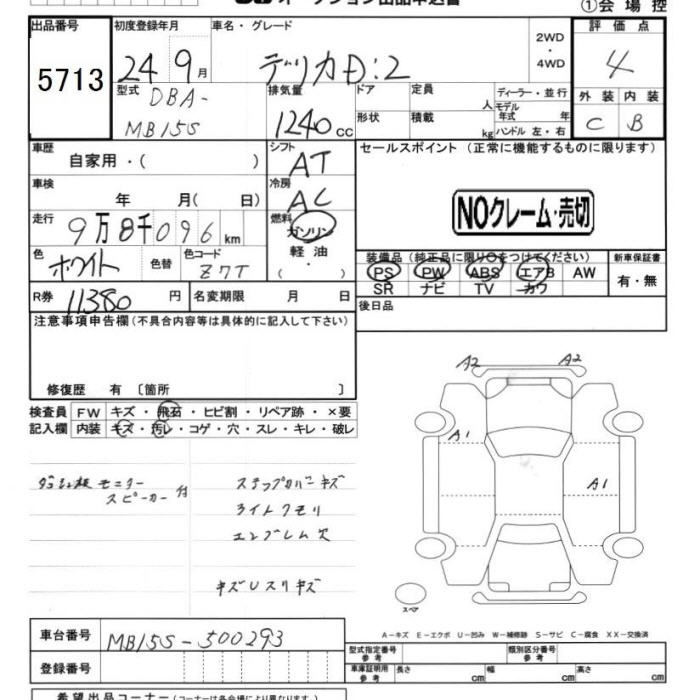 オークション出品申込書
①会場控
出品番号
5713
初度登録年月
24 9月
車名・グレード
デリカD:2
2WD
・
4WD
評価点
4
外装 内装
C B
型式
DBA-
MB15S
排気量
1240cc
ドア
形状
定員
人
積載
kg
ディーラー・並行
モデル
年式 年
ハンドル 左・右
車歴
自家用・( )
シフト
AT
セールスポイント (正常に機能するものに限ります)
NOクレーム・売切
車検
年 月( 日)
冷房
AC
走行
9万8千096km
燃料
ガソリン
軽油
・
( )
色
ホワイト
色替
色コード
Z7T
装備品 (純正品に限り○をつけてください)
PS PW ABS エアB AW
SR ナビ TV カワ
新車保証書
有・無
R券
11380円
名変期限 月 日
後日品
注意事項申告欄 (不具合内容等は具体的に記入して下さい)
修復歴 有 〔箇所 〕
検査員 FW キズ・飛石・ヒビ割・リペア跡・×要
記入欄 内装 キズ・汚レ・コゲ・穴・スレ・キレ・破レ
モニター
スピーカー付
ステップカバーキズ
ライトクモリ
エンブレム欠
キズUスリキズ
A2 A2
A1
A1
スペア
A-キズ E-エクボ U-凹み W-補修跡 S-サビ C-腐食 XX-交換済
車台番号
MB15S-500293
登録番号
型式指定番号
参考
類別区分番号
参考
車庫証明用
参考
長さ cm 幅 cm 高さ cm
希望出品コーナー (コーナーは各会場により異なります。)